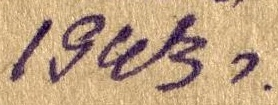 1943 г.